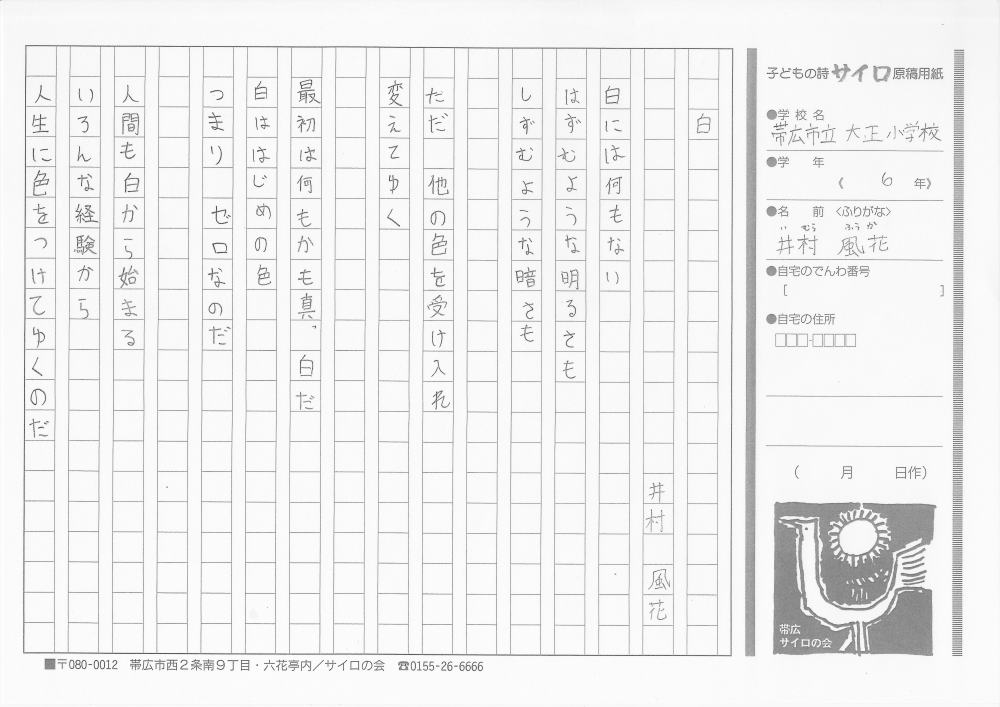 子どもの詩サイロ原稿用紙
●学校名
帯広市立 大正小学校
●学 年
《 6 年》
●名 前 〈ふりがな〉
い むら ふう か
井村 風花
●自宅のでんわ番号
[ ]
●自宅の住所
□□□-□□□□
( 月 日作)
帯広
サイロの会
白
井村 風花
白には何もない
はずむような明るさも
しずむような暗さも
ただ 他の色を受け入れ
変えてゆく
最初は何もかも真っ白だ
白ははじめの色
つまり ゼロなのだ
人間も白から始まる
いろんな経験から
人生に色をつけてゆくのだ
■〒080-0012 帯広市西2条南9丁目・六花亭内/サイロの会 ☎0155-26-6666